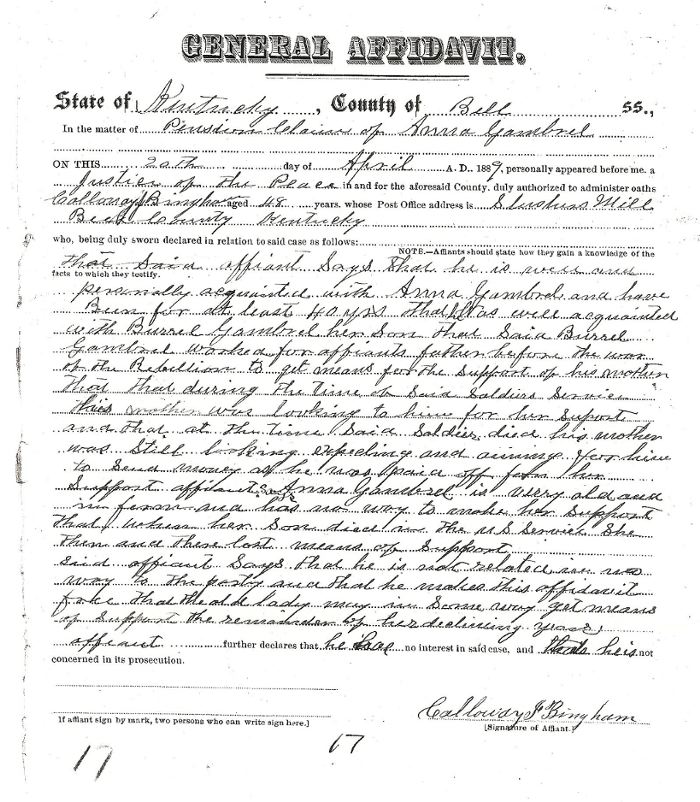 GENERAL AFFIDAVIT.
State of Kentucky, County of Bell SS.,
In the matter of Pension Claim of Anna Gambrel
ON THIS 20th day of April A. D., 1889, personally appeared before me. a
Justice of the Peace in and for the aforesaid County, duly authorized to administer oaths
Calloway Bingham aged 48 years, whose Post Office address is Slushers Mill
Bell County Kentucky
who, being duly sworn declared in relation to said case as follows:
NOTE.—Affiants should state how they gain a knowledge of the
facts to which they testify.
That Said affiant Says that he is well and
personally acquainted with Anna Gambrel and have
Bin for at least 40 yrs that was well acquainted
with Burrel Gambrel her Son that Said Burrel
Gambrel worked for affiants father before the war
of the Rebellion to get means for the Support of his mother
That that during the time of Said Soldiers Service
his mother was looking to him for her Suport
and that at the time Said Soldier died his mother
was Still looking expecting and for him
to Send money as he was paid off for her
Support affiant Says Anna Gambrel is very old and
infirm and has no way to make her Support
that when her Son died in the U S Service She
then and there lost means of Support
Said affiant Says that he is not related in no
way to the party and that he makes this affidavit
that the old lady may in Some way get means
of Support the remainder of her declining years
affiant further declares that he has no interest in said case, and that he is not
concerned in its prosecution.
Calloway Bingham
[Signature of Affiant.]
If affiant sign by mark, two persons who can write sign here.]
17
17